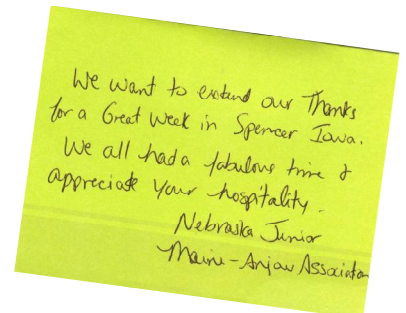 We want to extend our Thanks
for a Great Week in Spencer Iowa.
We all had a fabulous time &
appreciate your hospitality.
Nebraska Junior
Maine-Anjou Association